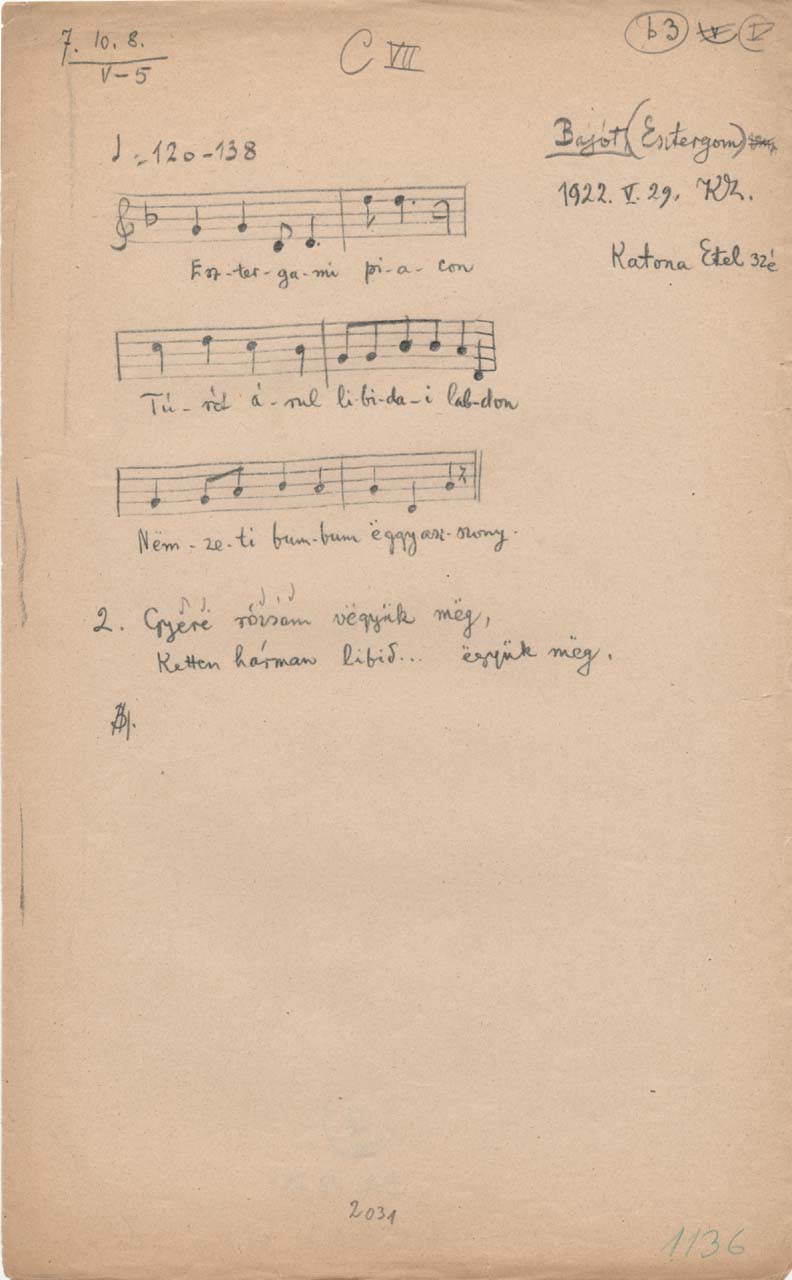 7. 10. 8.
V-5
C VII
b3 V
♩=120-138
Bajót (Esztergom)
1922. V. 29. KZ.
Katona Etel 32é
Esz-ter-ga-mi pi-a-con
Tú-rót á-rul li-bi-da-i lab-don
Nëm-ze-ti bum-bum ëggyasz-szony.
2. Gyërë rózsám vëgyük mëg,
Ketten hárman libid... ëgyük mëg.
2031
1136